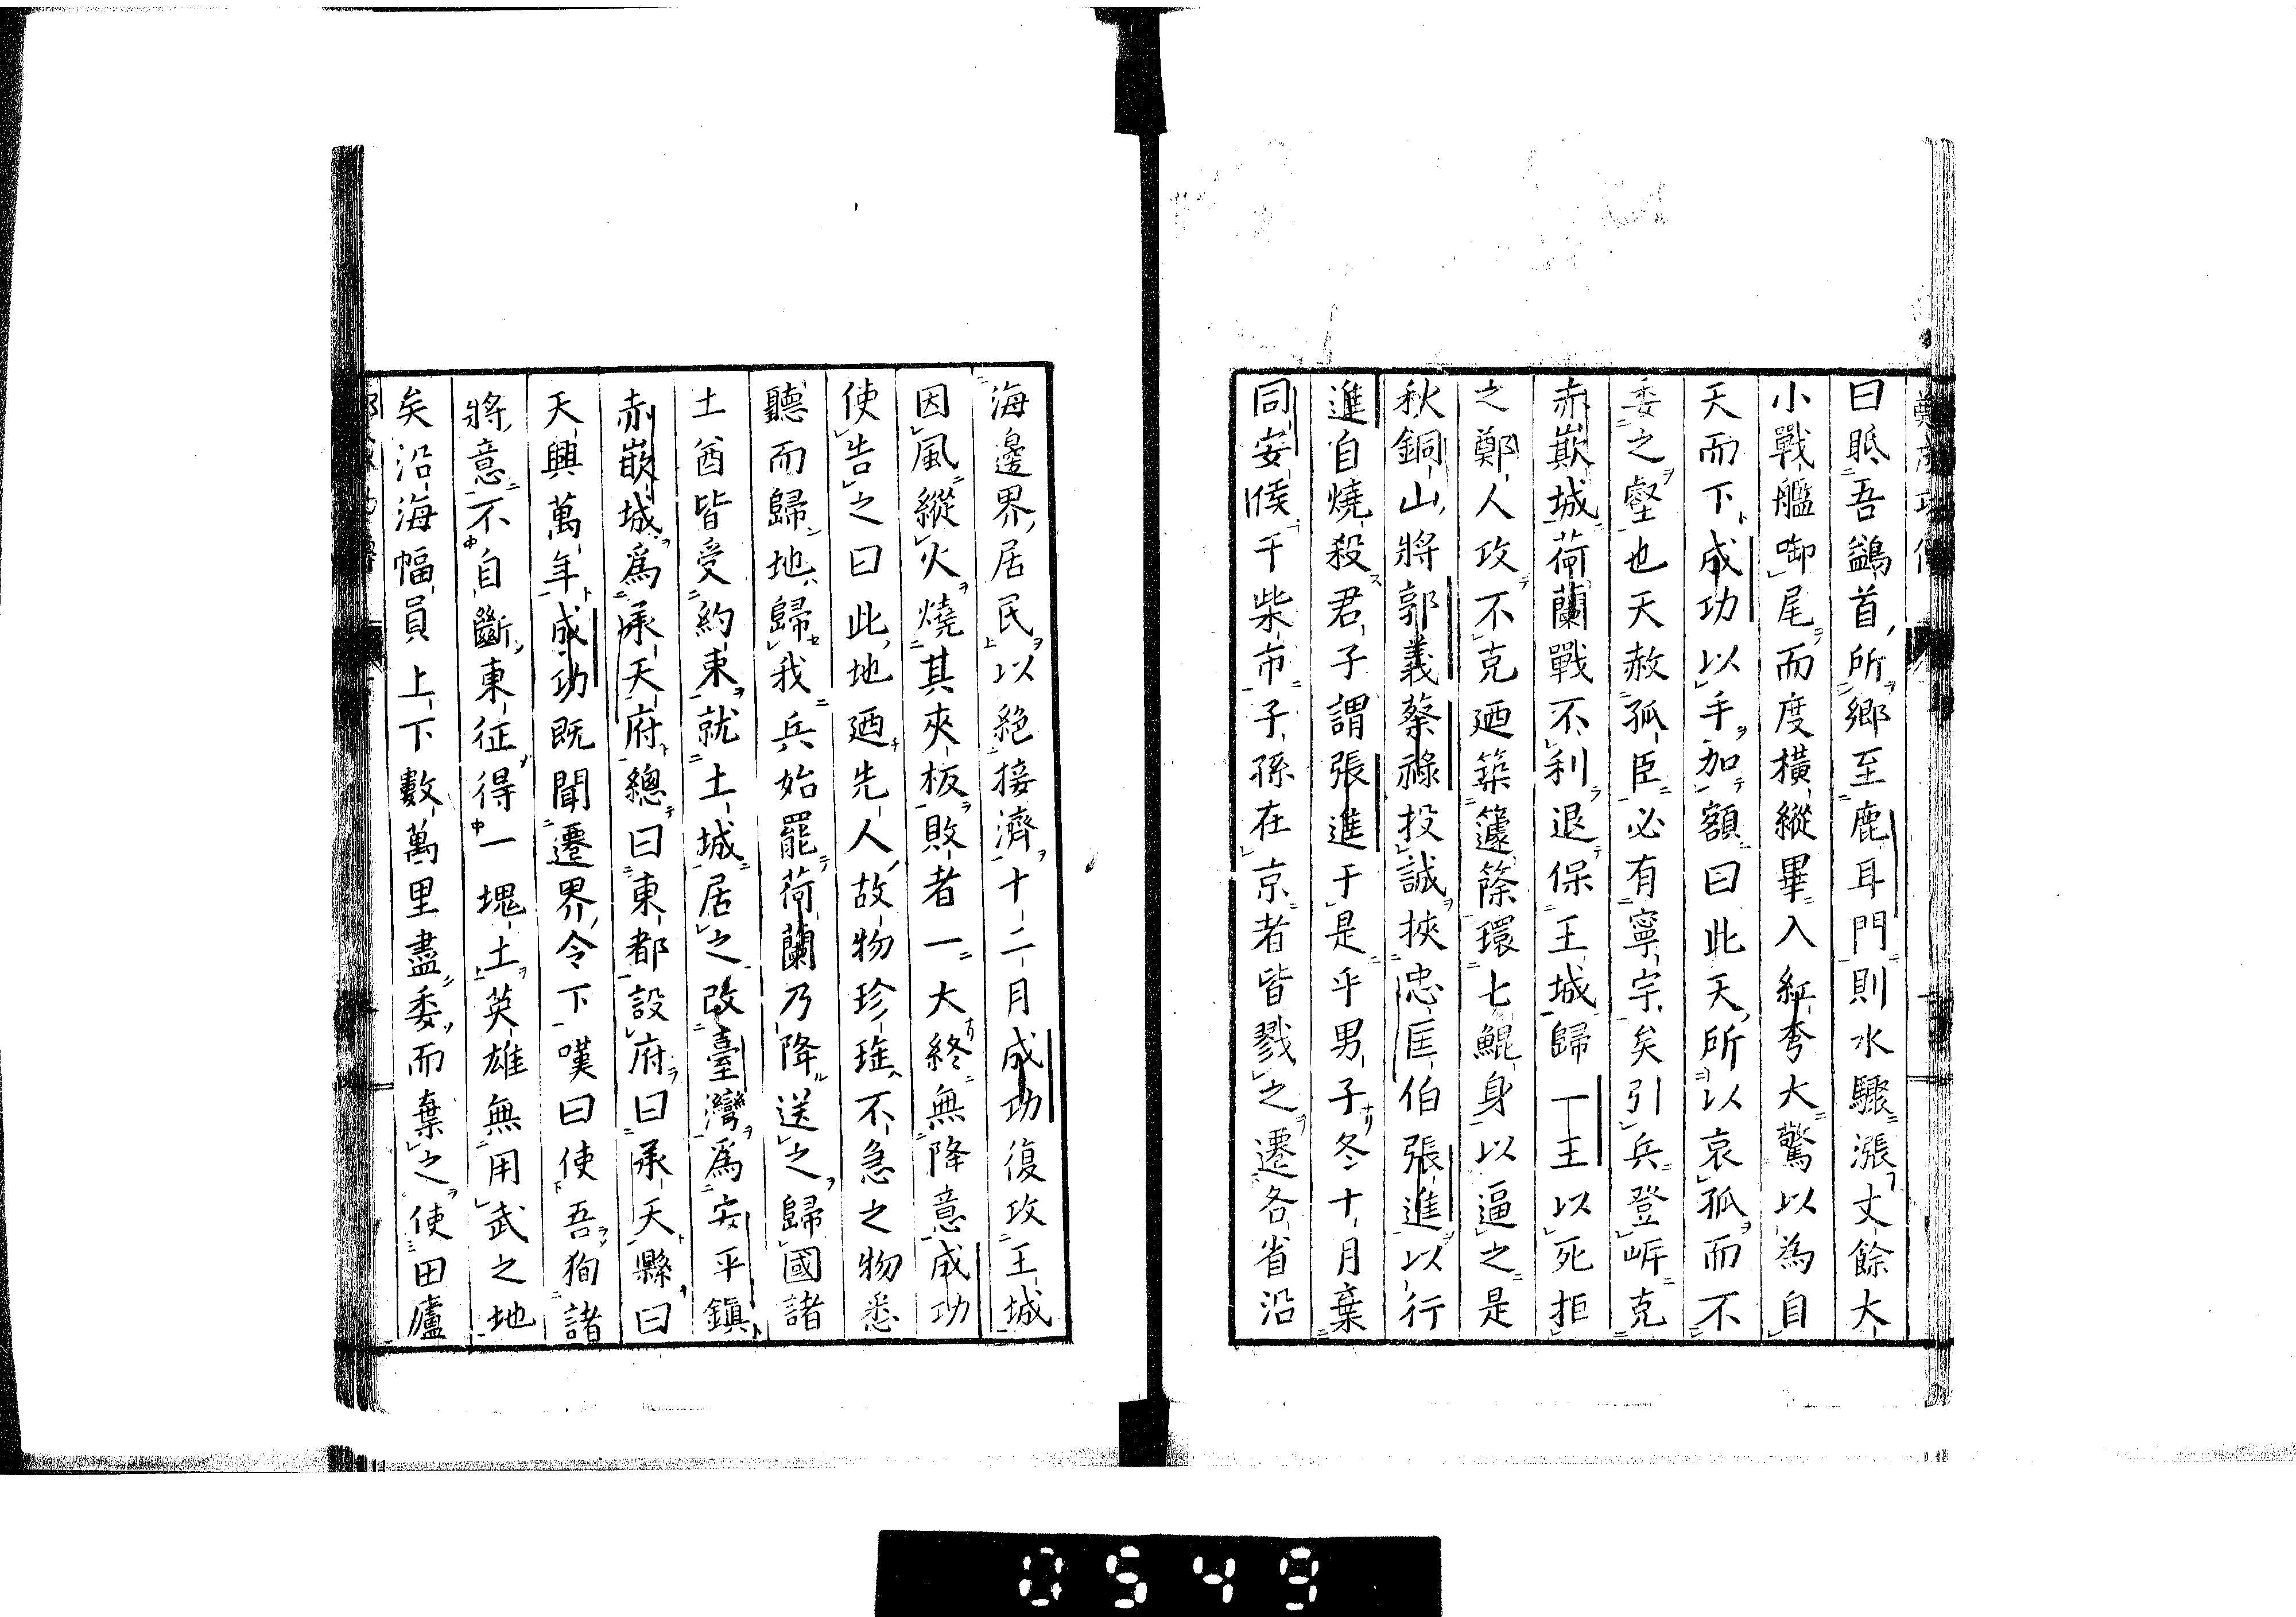 鄭成功傳
曰眂吾鷁首所鄉至鹿耳門則水驟漲丈餘大
小戰艦啣尾而度橫縱畢入紅夸大驚以為自
天而下成功以手加額曰此天所以哀孤而不
委之壑也天赦孤臣必有寧宇矣引兵登岍克
赤嵌城荷蘭戰不利退保王城歸一王以死拒
之鄭人攻不克廼築籧篨環七鯤身以逼之是
秋銅山將郭義蔡祿投誠挾忠匡伯張進以行
進自燒殺君子謂張進于是乎男子冬十月棄
同安侯于柴市子孫在京者皆戮之遷各省沿
海邊界居民以絕接濟十二月成功復攻王城
因風縱火燒其夾板敗者一大終無降意成功
使告之曰此地廼先人故物珍瑤不急之物悉
聽而歸地歸我兵始罷荷蘭乃降送之歸國諸
土酋皆受約束就土城居之改臺灣爲安平鎮
赤嵌城爲承天府總曰東都設府曰承天縣曰
天興萬年成功既聞遷界令下嘆曰使吾狥諸
將意不自斷東征得一塊土英雄無用武之地
矣沿海幅員上下數萬里盡委而棄之使田廬
0549